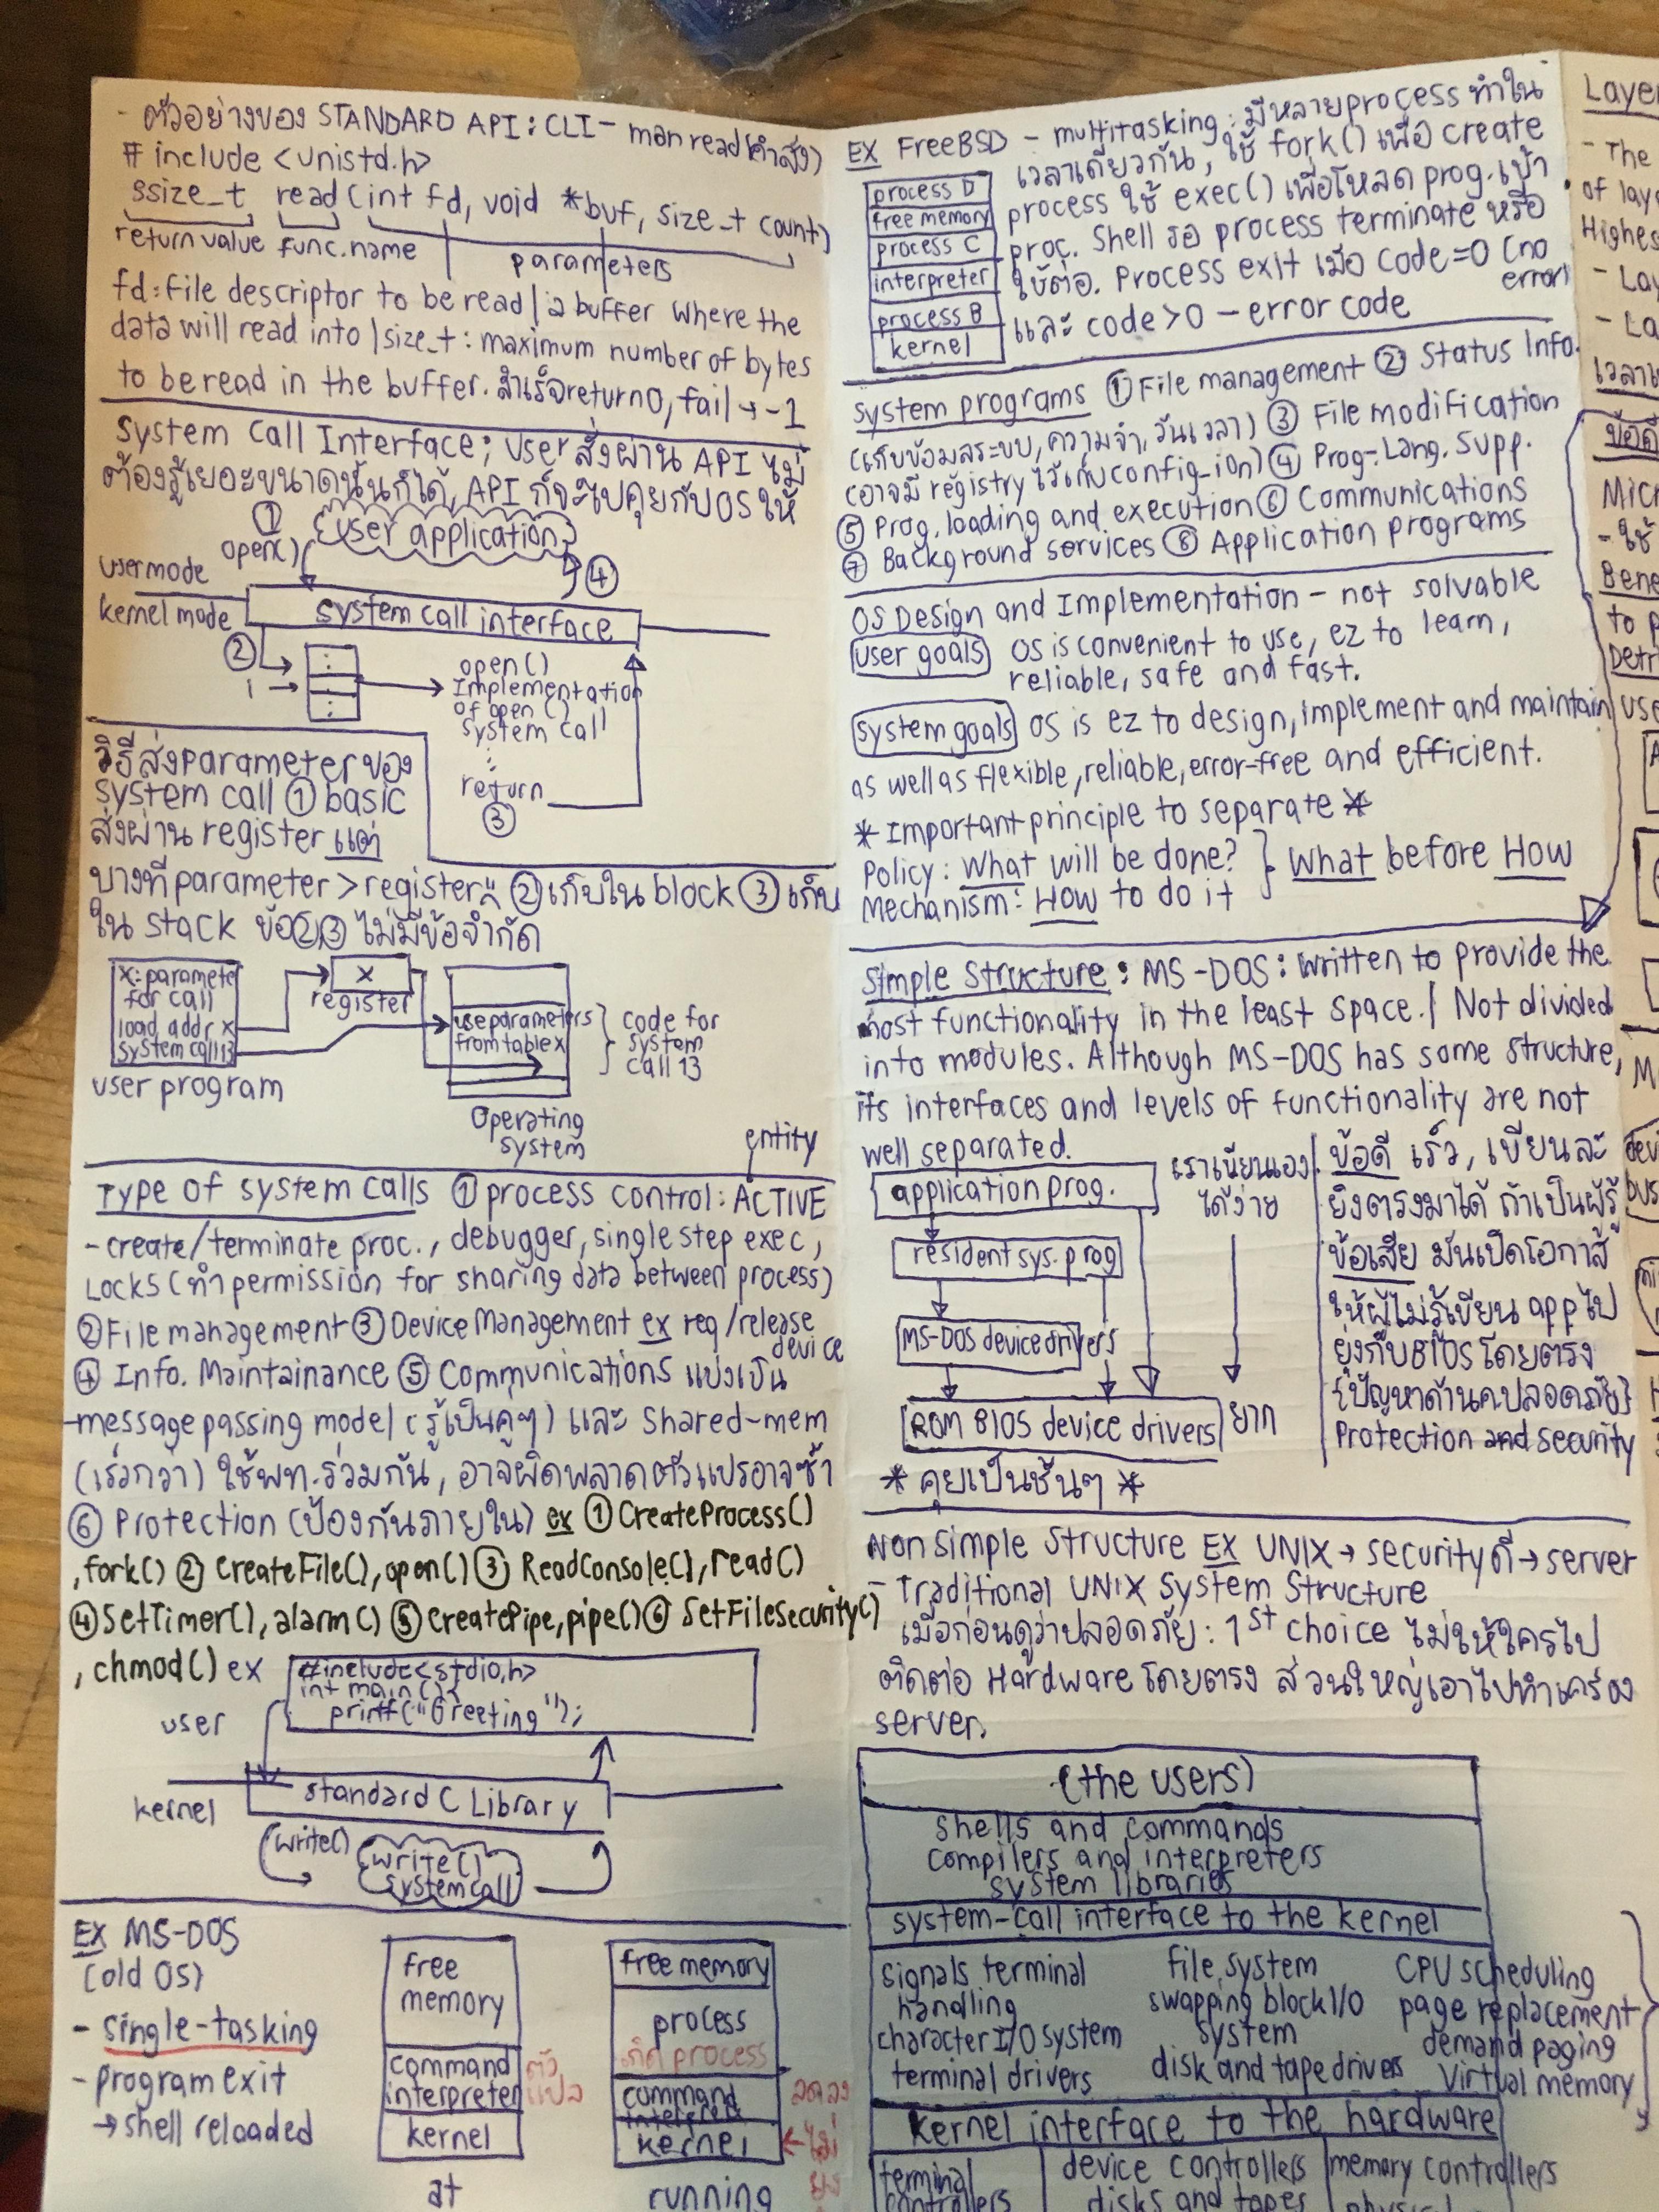 - ตัวอย่างของ STANDARD API : CLI - man read (คำสั่ง)
# include <unistd.h>
ssize_t read (int fd, void *buf, size_t count)
return value func.name parameters
fd : File descriptor to be read | a buffer where the
data will read into | size_t : maximum number of bytes
to be read in the buffer. สำเร็จ return 0, fail → -1
System Call Interface; User สั่งผ่าน API ไม่
ต้องรู้เยอะขนาดนั้นก็ได้, API ก็จะไปคุยกับ OS ให้
①
open() user application
user mode ④
kernel mode system call interface
②
i →
open()
Implementation
of open()
system call
return
③
วิธีส่ง parameter ของ
system call ① basic
ส่งผ่าน register แต่
บางที parameter > register ∴ ② เก็บใน block ③ เก็บ
ใน stack ข้อ ②,③ ไม่มีข้อจำกัด
x: parameter
for call
load addr x
system call 13
user program
x
register
use parameters
from table x
code for
system
call 13
Operating
system
entity
Type of system calls ① process control : ACTIVE
- create/terminate proc., debugger, single step exec,
Locks (ทำ permission for sharing data between process)
② File management ③ Device Management ex req/release
device
④ Info. Maintainance ⑤ Communications แบ่งเป็น
- message passing model (รู้เป็นคู่ๆ) และ shared-mem
(เร็วกว่า) ใช้พท.ร่วมกัน, อาจผิดพลาดตัวแปรอาจซ้ำ
⑥ Protection (ป้องกันภายใน) ex ① CreateProcess()
, fork() ② CreateFile(), open() ③ ReadConsole(), read()
④ SetTimer(), alarm() ⑤ CreatePipe, pipe() ⑥ SetFileSecurity()
, chmod() ex
#include<stdio.h>
int main() {
printf("Greeting");
user
standard C Library
kernel
write()
write()
system call
EX MS-DOS
(old OS)
- single-tasking
- program exit
→ shell reloaded
free
memory
command
interpreter
ตัว
แปล
kernel
at
free memory
process
เกิด process
command
ลดลง
kernel
← ไม่
ยุ่ง
running
EX FreeBSD - multitasking : มีหลาย process ทำใน
เวลาเดียวกัน, ใช้ fork() เพื่อ create
process ใช้ exec() เพื่อโหลด prog. เข้า
proc. Shell รอ process terminate หรือ
ใช้ต่อ. Process exit เมื่อ code=0 (no
error)
และ code>0 - error code
process D
free memory
process C
interpreter
process B
kernel
System programs ① File management ② Status Info.
(เก็บข้อมูลระบบ, ความจำ, วันเวลา) ③ File modification
(อาจมี registry ไว้เก็บ config-ion) ④ Prog.-Lang. Supp.
⑤ Prog. loading and execution ⑥ Communications
⑦ Background services ⑧ Application programs
OS Design and Implementation - not solvable
User goals OS is convenient to use, ez to learn,
reliable, safe and fast.
System goals OS is ez to design, implement and maintain
as well as flexible, reliable, error-free and efficient.
* Important principle to separate *
Policy : What will be done? } What before How
Mechanism : How to do it
Simple Structure : MS-DOS : Written to provide the
most functionality in the least space. / Not divided
into modules. Although MS-DOS has some structure,
its interfaces and levels of functionality are not
well separated.
application prog.
resident sys. prog
MS-DOS device drivers
ROM BIOS device drivers
เราเขียนเอง
ได้ง่าย
ยาก
* คุยเป็นชั้นๆ *
ข้อดี เร็ว, เขียนละ
ยิงตรงมาได้ ถ้าเป็นผู้รู้
ข้อเสีย มันเปิดโอกาส
ให้ผู้ไม่รู้เขียน app ไป
ยุ่งกับ BIOS โดยตรง
{ปัญหาด้านค.ปลอดภัย}
Protection and security
Non Simple Structure EX UNIX → security ดี → server
- Traditional UNIX System Structure
เมื่อก่อนดูว่าปลอดภัย : 1st choice ไม่ให้ใครไป
ติดต่อ Hardware โดยตรง ส่วนใหญ่เอาไปทำเครื่อง
server.
(the users)
shells and commands
compilers and interpreters
system libraries
system-call interface to the kernel
signals terminal
handling
character I/O system
terminal drivers
file system
swapping block I/O
system
disk and tape drivers
CPU scheduling
page replacement
demand paging
virtual memory
kernel interface to the hardware
terminal
controllers
device controllers
disks and tapes
memory controllers
Layer
- The
of lay
Highes
- Lay
- La
ข้อดี
Micr
- ใช้
Bene
to p
Detr
use